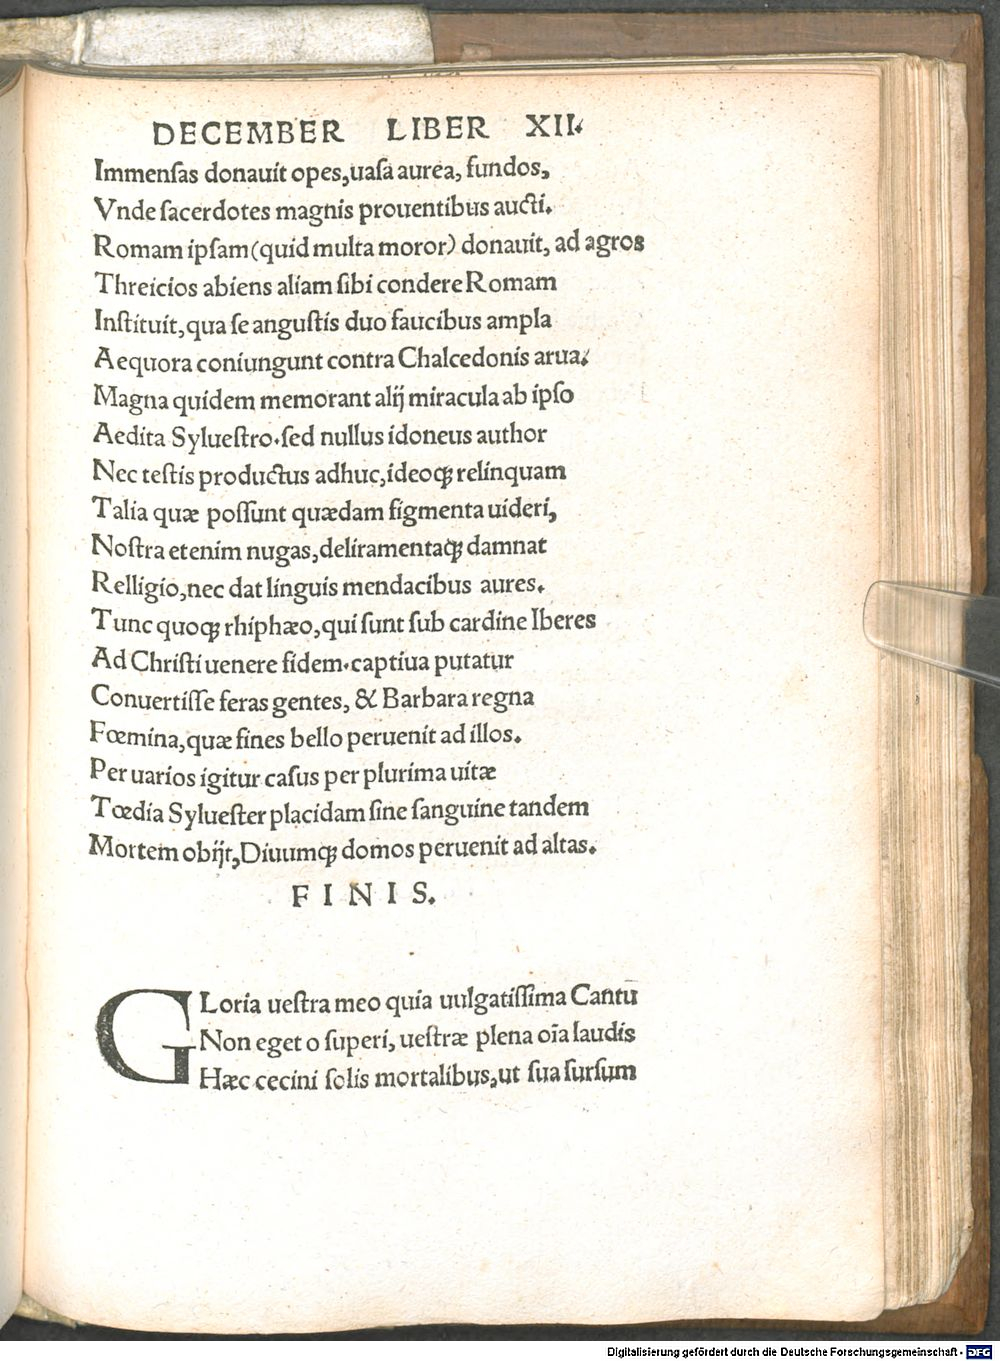 DECEMBER LIBER XII.
Immenſas donauit opes,uaſa aurea, fundos,
Vnde ſacerdotes magnis prouentibus aucti.
Romam ipſam(quid multa moror) donauit, ad agros
Threicios abiens aliam ſibi condere Romam
Inſtituit,qua ſe anguſtis duo faucibus ampla
Aequora coniungunt contra Chalcedonis arua.
Magna quidem memorant alij miracula ab ipſo
Aedita Sylueſtro.ſed nullus idoneus author
Nec teſtis productus adhuc,ideoꝗ relinquam
Talia quæ poſſunt quædam figmenta uideri,
Noſtra etenim nugas,deliramentaꝗ damnat
Relligio,nec dat linguis mendacibus aures.
Tunc quoꝗ rhiphæo,qui ſunt ſub cardine Iberes
Ad Chriſti uenere fidem.captiua putatur
Conuertiſſe feras gentes, & Barbara regna
Fœmina,quæ fines bello peruenit ad illos.
Per uarios igitur caſus per plurima uitæ
Tœdia Sylueſter placidam ſine ſanguine tandem
Mortem obijt,Diuumꝗ domos peruenit ad altas.
FINIS.
GLoria ueſtra meo quia uulgatiſſima Cantū
Non eget o ſuperi, ueſtræ plena oīa laudis
Hæc cecini ſolis mortalibus,ut ſua ſurſum
Digitalisierung gefördert durch die Deutsche Forschungsgemeinschaft - DFG